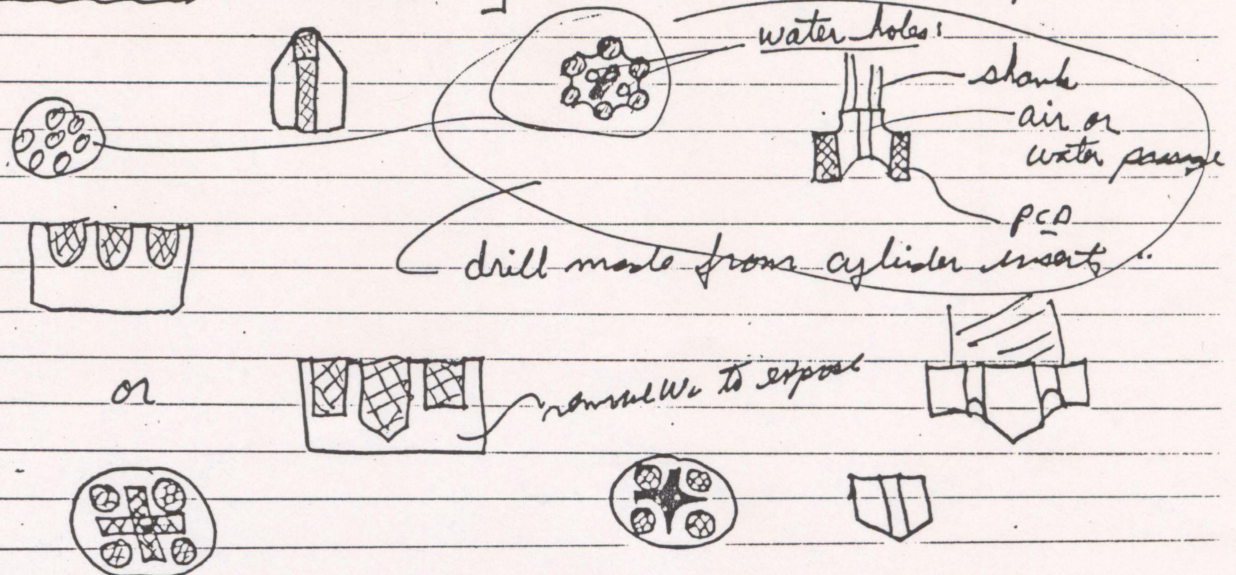 water holes:
shank
air or
water passage
PCD
drill made from cylinder inserts ..
or
remove Wc to expose